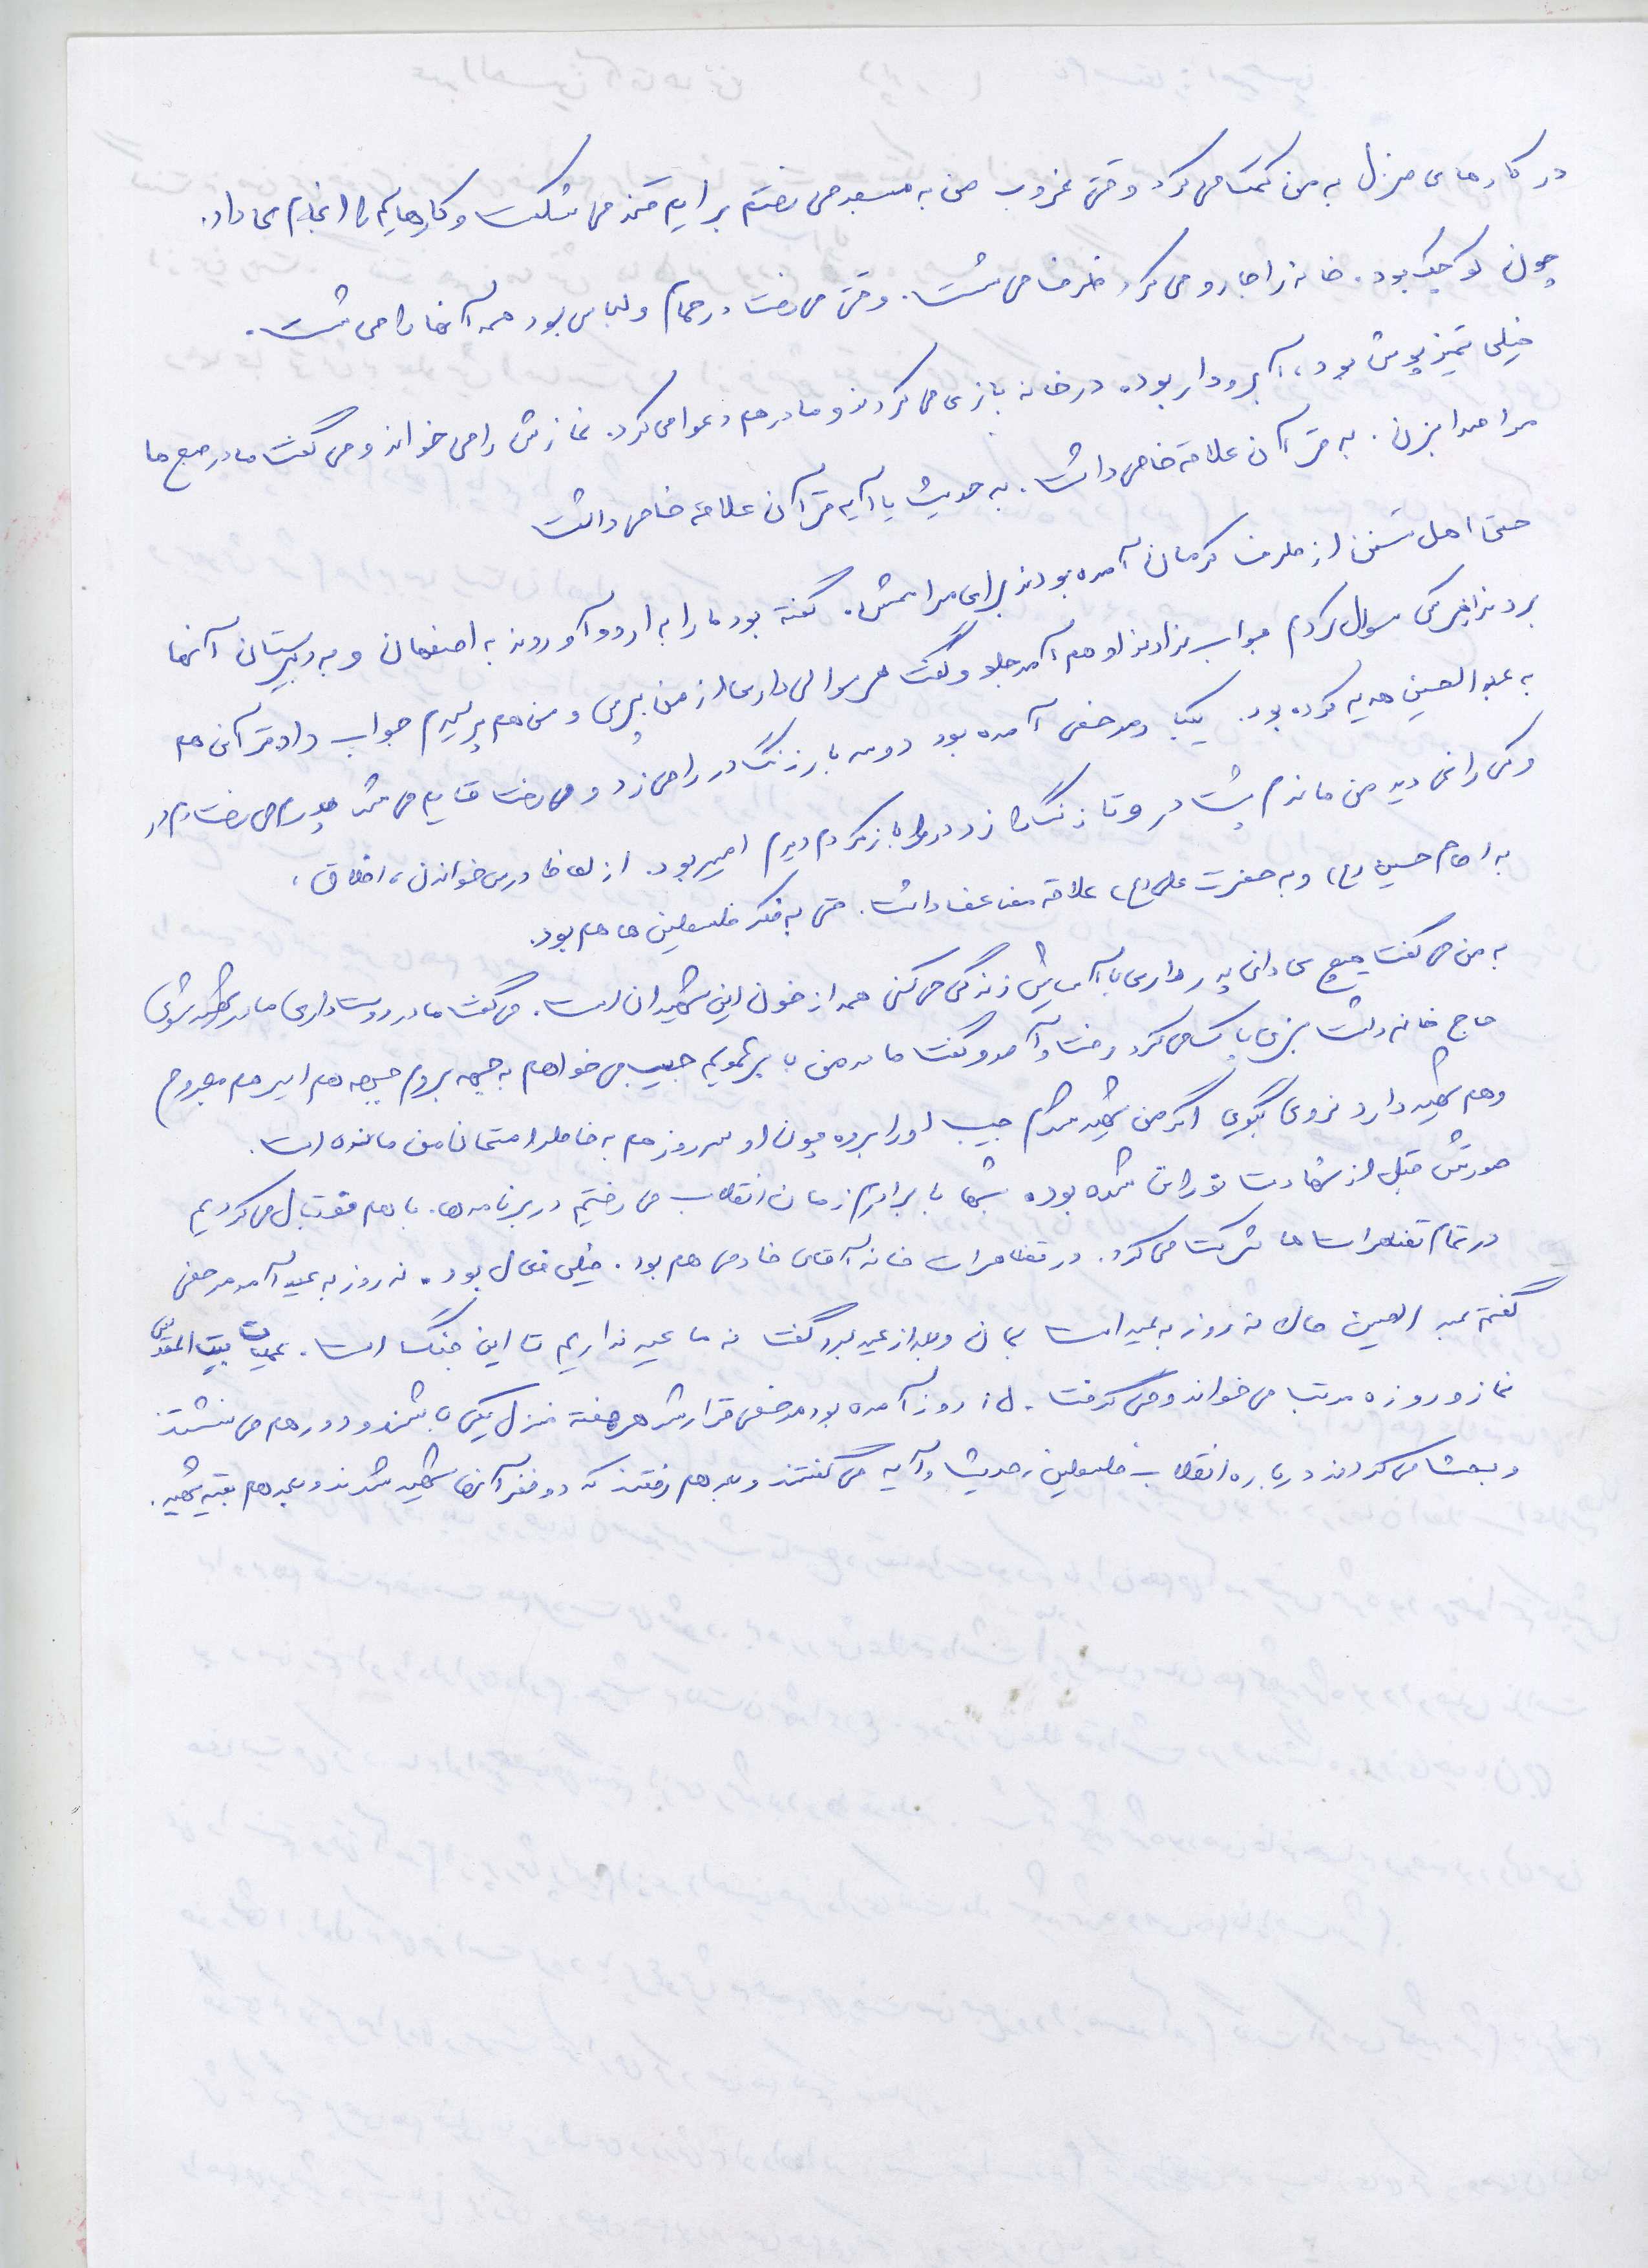 در کارهای منزل به من کمک می کرد وقتی غروب من به مسجد می رفتم برایم قند می شکست و کارهایم را انجام می داد.
چون کوچک بود. خانه را جارو می کرد ظرف می شست. وقتی می رفت در حمام و لباس بود همه آنها را می شست.
خیلی تمیز پوش بود، آبرودار بوده در خانه بازی می کردند و مادرم دعوا می کرد. نمازش را می خواند و می گفت مادر صبح ها
مرا صدا بزن. به قرآن علاقه خاصی داشت. به حدیث یا آیه قرآن علاقه خاصی داشت
حتی اهل تسنن از طرف کرمان آمده بودند برای مراسمش. گفته بود ما را به اردو آوردند به اصفهان و به دبیرستان آنها
بردند از هر کی سوال کردم جواب ندادند او هم آمد جلو و گفت هر سوالی داری از من بپرس و من هم پرسیدم جواب داد قرآنی هم
به عبدالحسین هدیه کرده بود. یکبار مرخصی آمده بود دو سه بار زنگ در را می زد و می رفت قایم می شد می رفت دم در
و کسی را نمی دید من ماندم پشت در و تا زنگ را زد در را باز کردم دیدم امیر بود. از لحاظ درس خواندن، اخلاق،
به امام حسین (ع) و به حضرت علی (ع) علاقه مضاعف داشت. حتی به فکر فلسطین ها هم بود.
به من می گفت هیچ می دانی پدر داری با آسایش زندگی می کنی همه از خون این شهیدان است. می گفت مادر دوست داری مادر شهید شوی
حاج خانم داشت سبزی پاک می کرد رفت و آمد و گفت مادر من با پسرعمویم حبیب می خواهم به جبهه بروم جبهه هم اسیر هم مجروح
و هم شهید دارد نروی بگویی اگر من شهید شدم حبیب او را برده چون او سه روز هم به خاطر امتحان من مانده است.
صورتش قبل از شهادت نورانی شده بوده شبها با برادرم زمان انقلاب می رفتیم در برنامه ها. با هم فوتبال می کردیم
در تمام تظاهرات ها شرکت می کرد. در تظاهرات خانه آقای خادمی هم بود. خیلی فعال بود. نه روز به عید آمد مرخصی
گفتم عبد الحسین حالا نه روز به عید است بمان و بعد از عید برو گفت نه ما عید نداریم تا این جنگ است. عملیات بیت المقدس
نماز و روزه مرتب می خواند و می گرفت. ۱۵ روز آمده بود مرخصی قرار شد هر هفته منزل یکی باشند و دور هم می نشستند
و بحث می کردند درباره انقلاب فلسطین، حدیث و آیه می گفتند و بعد هم رفتند که دو نفر آنها شهید شدند و بعد هم بقیه شهید.